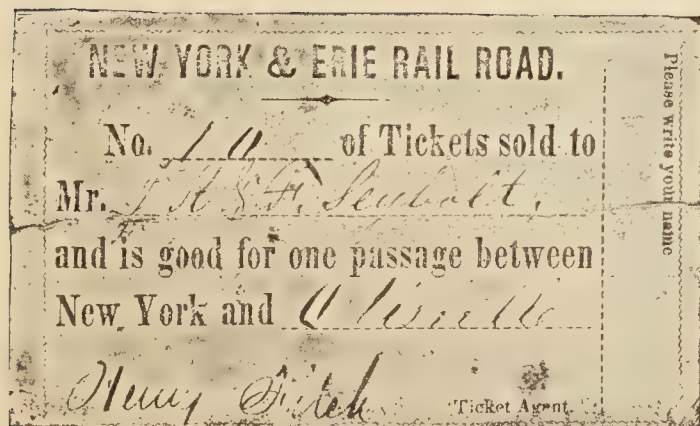 NEW YORK & ERIE RAIL ROAD.
No. 10 of Tickets sold to
Mr.
and is good for one passage between
New York and Otisville
Henry Fitch Ticket Agent.
Please write your name